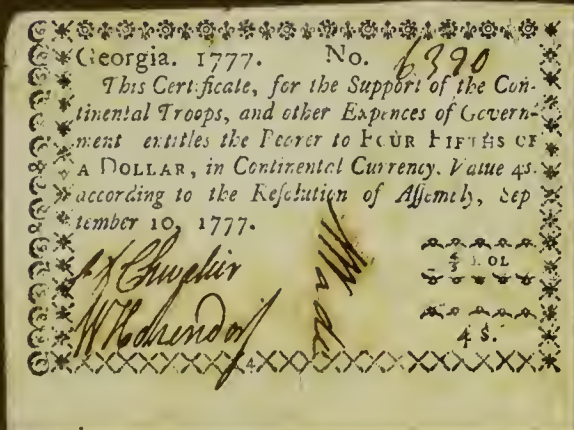 Georgia. 1777. No. 6390
This Certificate, for the Support of the Con-
tinental Troops, and other Expences of Govern-
ment entitles the Bearer to FOUR FIFTHS OF
A DOLLAR, in Continental Currency. Value 4s.
according to the Reſolution of Aſſembly, Sep
tember 10, 1777.
4/5 DOL
4 S.
4